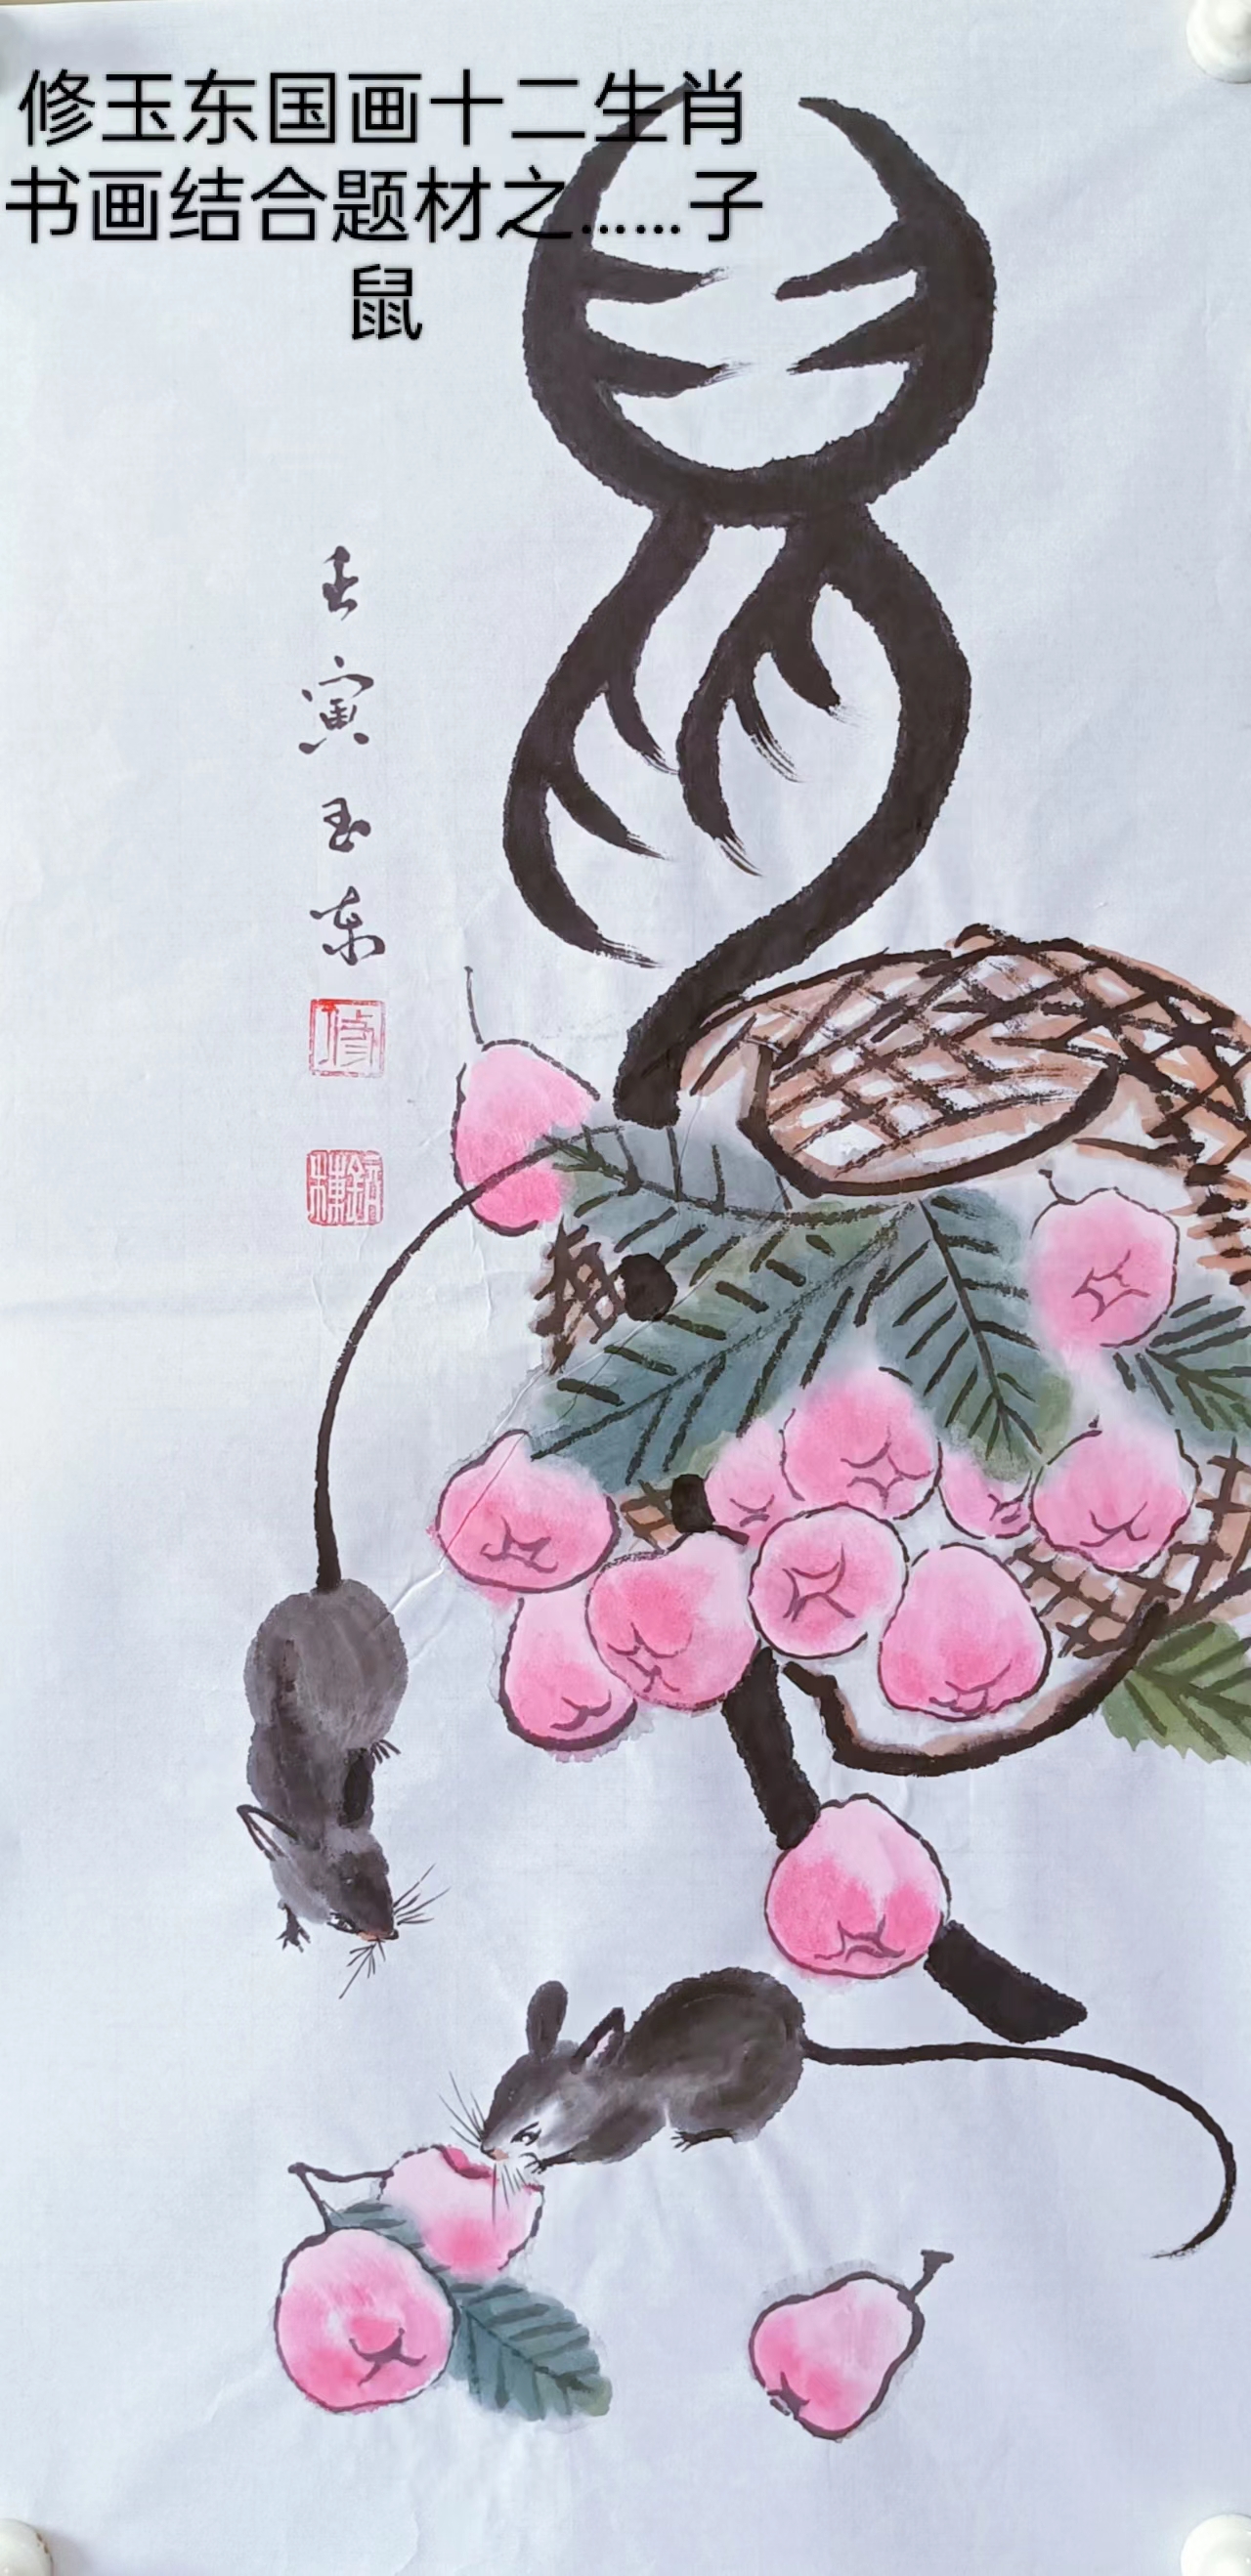 修玉东国画十二生肖
书画结合题材之……子
鼠
鼠
壬寅玉东
修